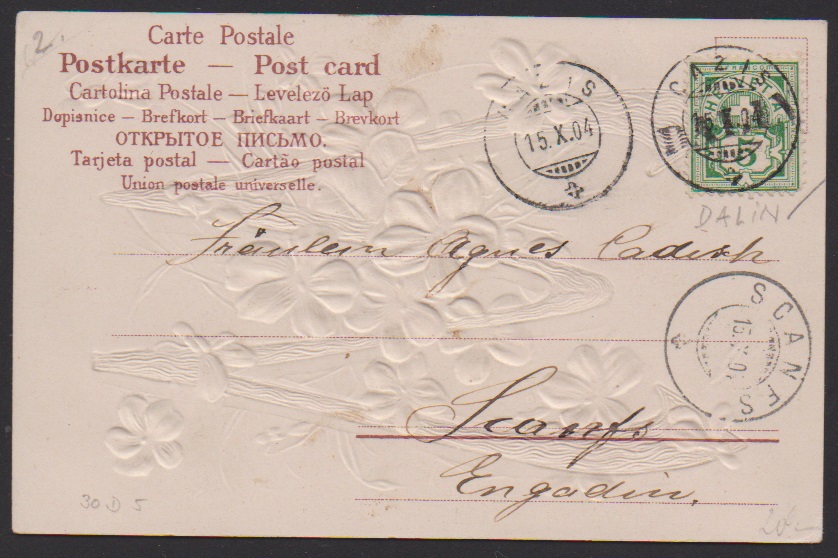 2.
Carte Postale
Postkarte — Post card
Cartolina Postale — Levelező Lap
Dopisnice — Brefkort — Briefkaart — Brevkort
ОТКРЫТОЕ ПИСЬМО.
Tarjeta postal — Cartão postal
Union postale universelle.
CAZIS
15.X.04
CAZIS
15.X.04
HELVETIA
5
DALIN
Fräulein Agnes Cadisch
SCANFS
15.X.04
Scanfs
Engadin.
30 D 5